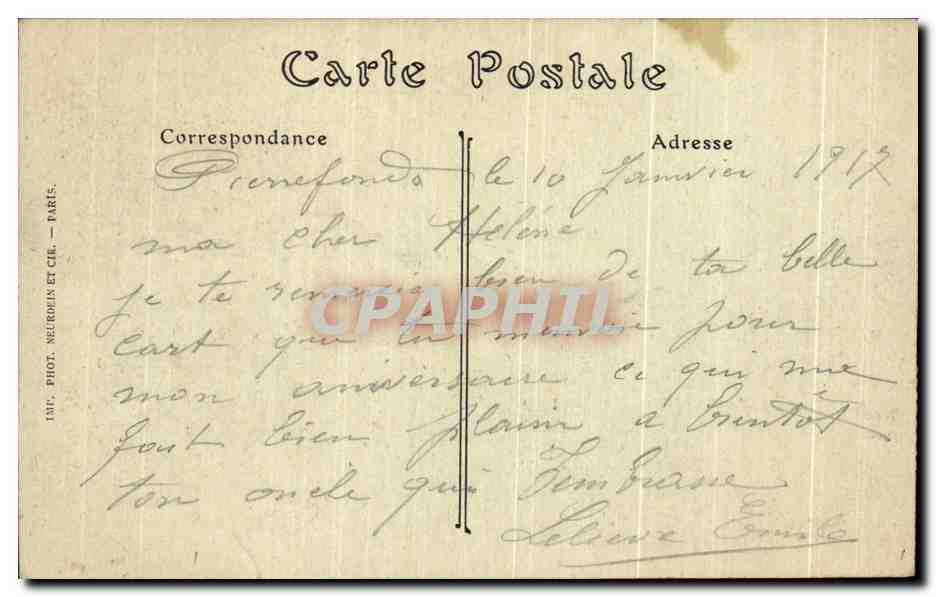 Carte Postale
Correspondance
Adresse
Pierrefonds le 10 Janvier 1917
ma cher Hélène
je te remercie bien de ta belle
cart que tu pour
mon aniversaire ce qui me
fait bien plaisir a bientôt
ton oncle qui t'embrasse
Lelievre Emile
IMP. PHOT. NEURDEIN ET CIE. — PARIS.
CPAPHIL